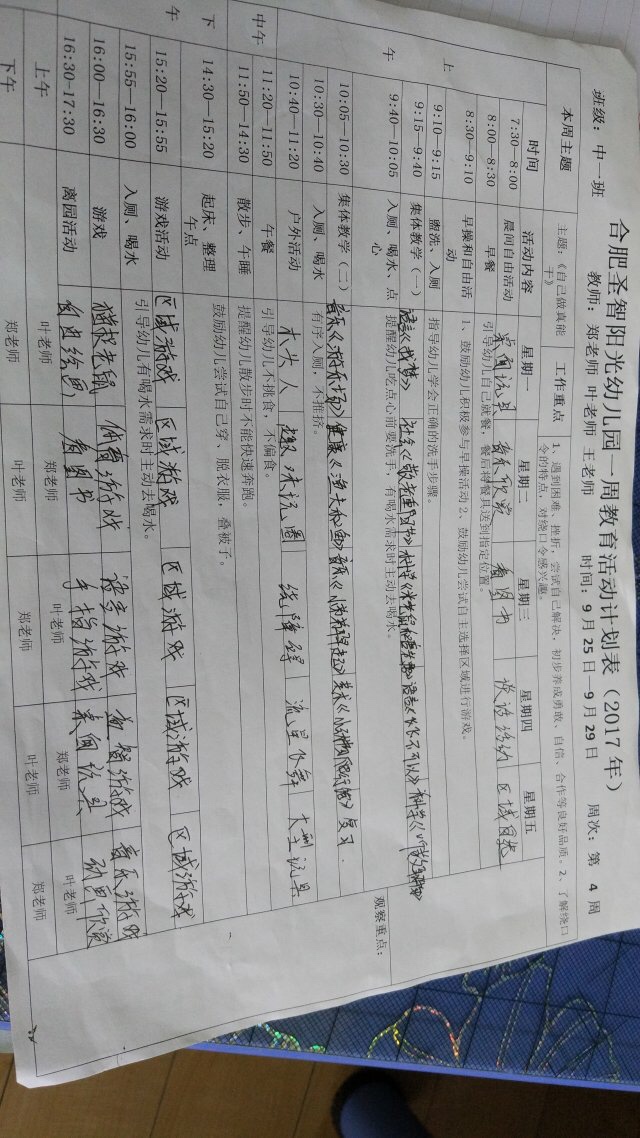 合肥圣智阳光幼儿园一周教育活动计划表（2017年）
班级：中一班 教师：郑老师 叶老师 王老师 时间：9月25日—9月29日 周次：第 4 周
本周主题 主题：《自己做真能干》 工作重点 1、遇到困难、挫折，尝试自己解决，初步养成勇敢、自信、合作等良好品质。2、了解绕口令的特点，对绕口令感兴趣。
时间 活动内容 星期一 星期二 星期三 星期四 星期五
上午
7:30—8:00 晨间自由活动 桌面玩具 音乐欣赏 看图书 谈话活动 区域自选
8:00—8:30 早餐 引导幼儿自己就餐，餐后将餐具送到指定位置。
8:30—9:10 早操和自由活动 1、鼓励幼儿积极参与早操活动 2、鼓励幼儿尝试自主选择区域进行游戏。
9:10—9:15 盥洗、入厕 指导幼儿学会正确的洗手步骤。
9:15—9:40 集体教学（一） 语言《 社会《 科学《 语言《 不可以》 科学《
9:40—10:05 入厕、喝水、点心 提醒幼儿吃点心前要洗手，有喝水需求时主动去喝水。
10:05—10:30 集体教学（二） 音乐《 健康《渔夫和鱼》 音乐《小 美术《小 》 复习
10:30—10:40 入厕、喝水 有序入厕，不推挤。
10:40—11:20 户外活动 木头人 趣味玩圈 绕障碍 流星飞舞 大型玩具
观察重点：
中午
11:20—11:50 午餐 引导幼儿不挑食，不偏食。
11:50—14:30 散步、午睡 提醒幼儿散步时不能快速奔跑。
下午
14:30—15:20 起床、整理 午点 鼓励幼儿尝试自己穿、脱衣服，叠被子。
15:20—15:55 游戏活动 区域游戏 区域游戏 区域游戏 区域游戏 区域游戏
15:55—16:00 入厕、喝水 引导幼儿有喝水需求时主动去喝水。
16:00—16:30 游戏 猫捉老鼠 体育游戏 语言游戏 益智游戏 音乐游戏
16:30—17:30 离园活动 自由绘画 看图书 手指游戏 桌面玩具 动画欣赏
上午 叶老师 郑老师 叶老师 郑老师 叶老师
下午 郑老师 叶老师 郑老师 叶老师 郑老师